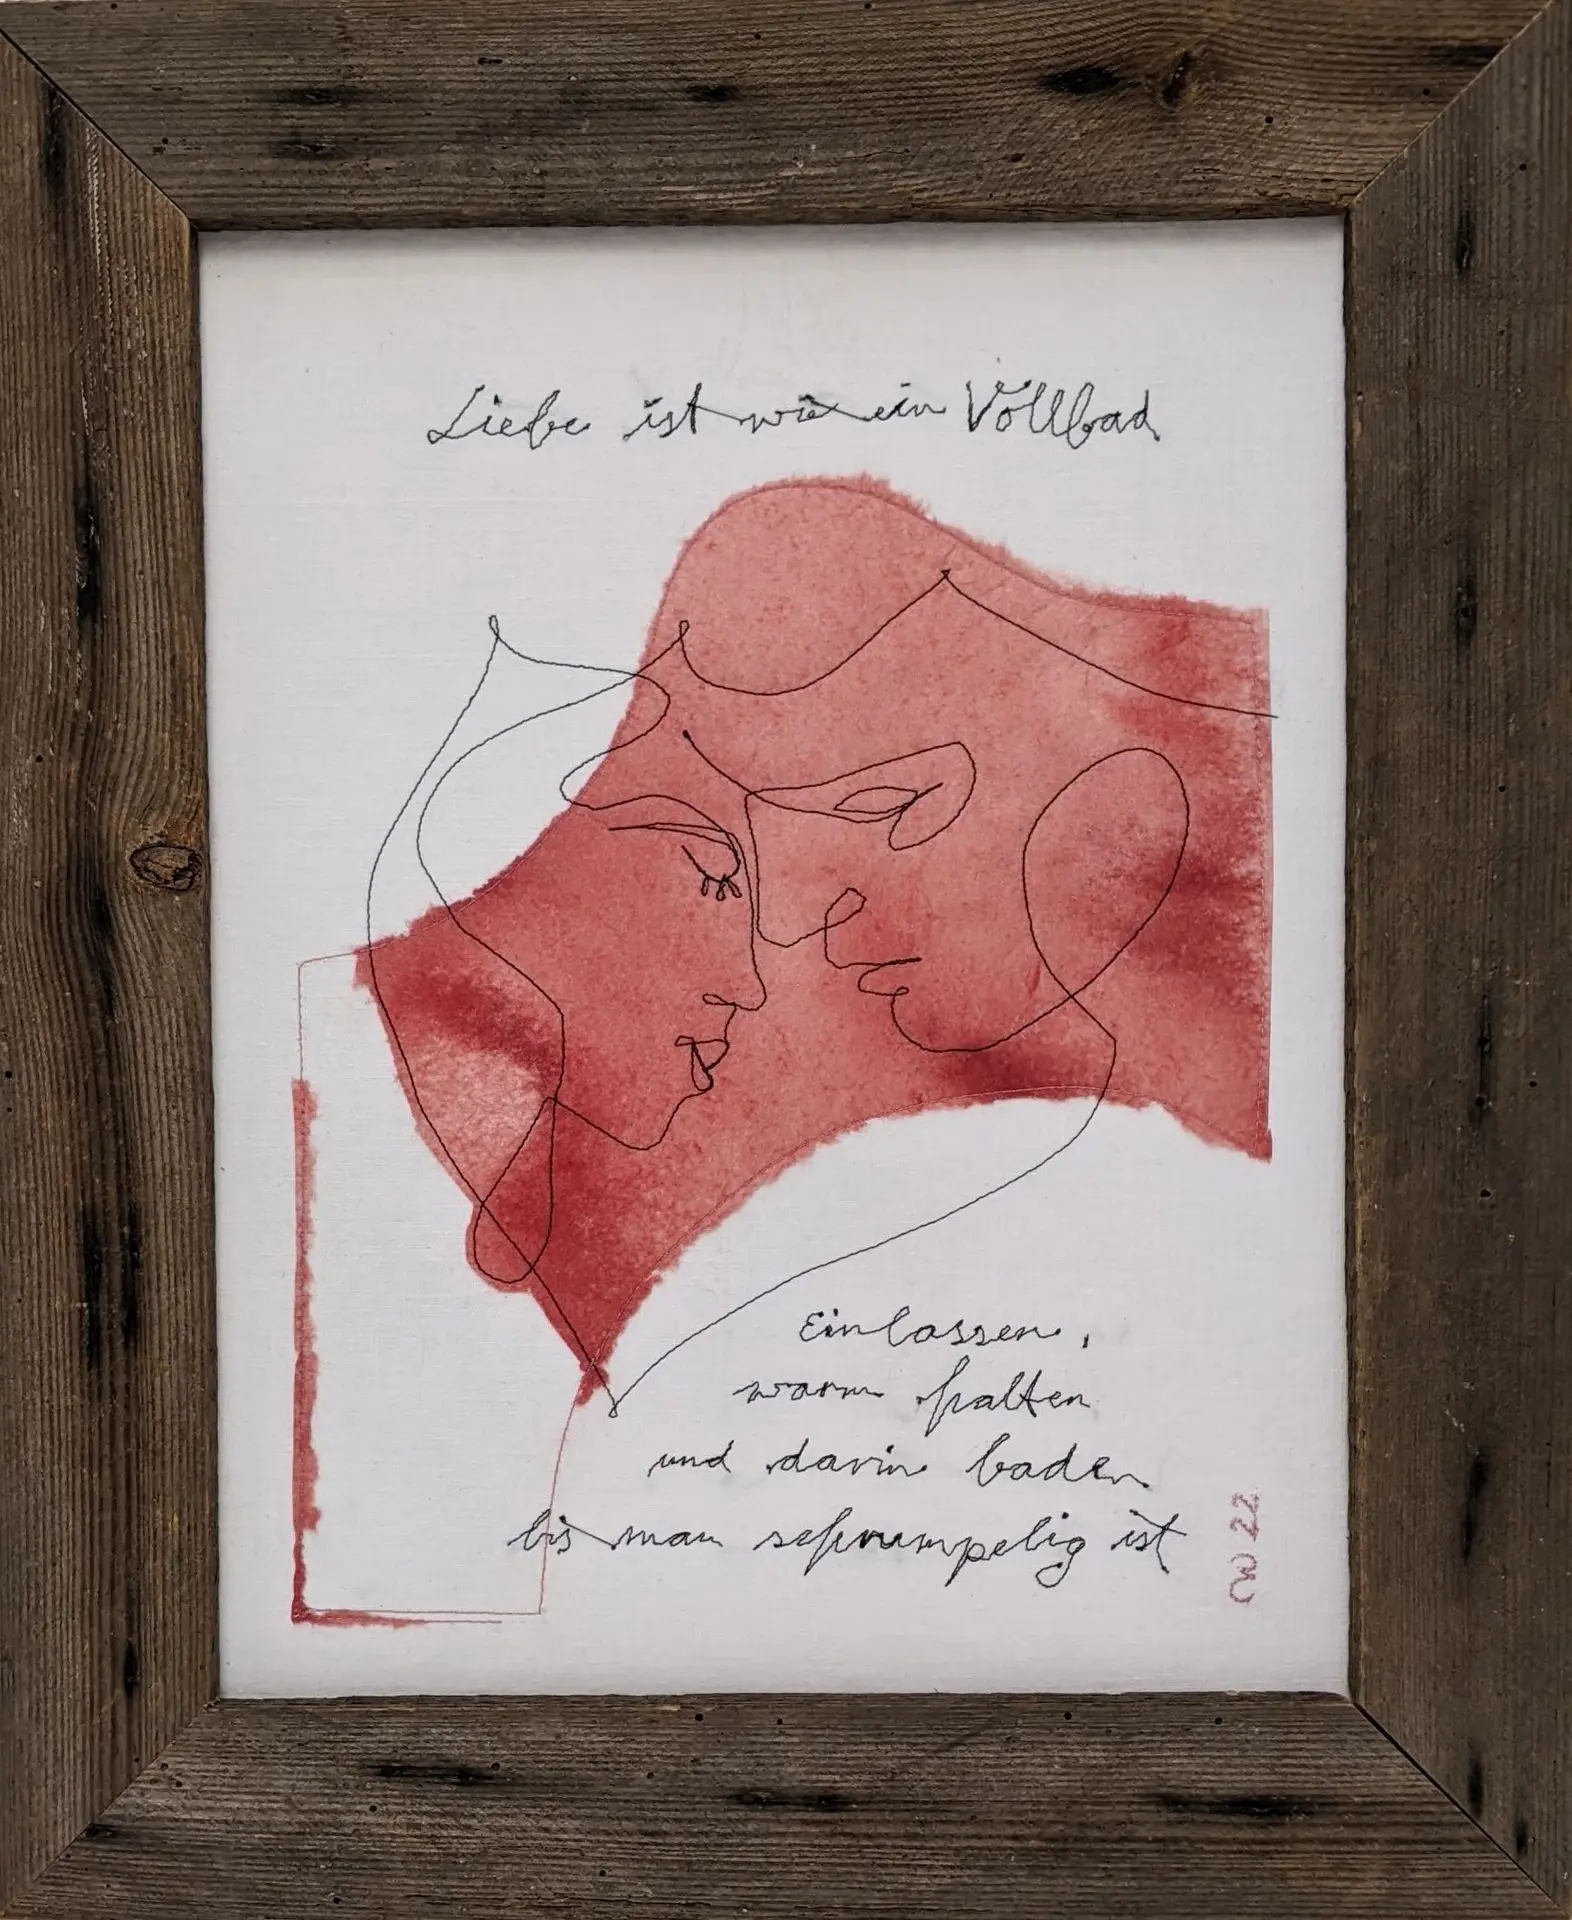 Liebe ist wie ein Vollbad
Einlassen,
warm halten
und darin baden
bis man schrumpelig ist
CW 22